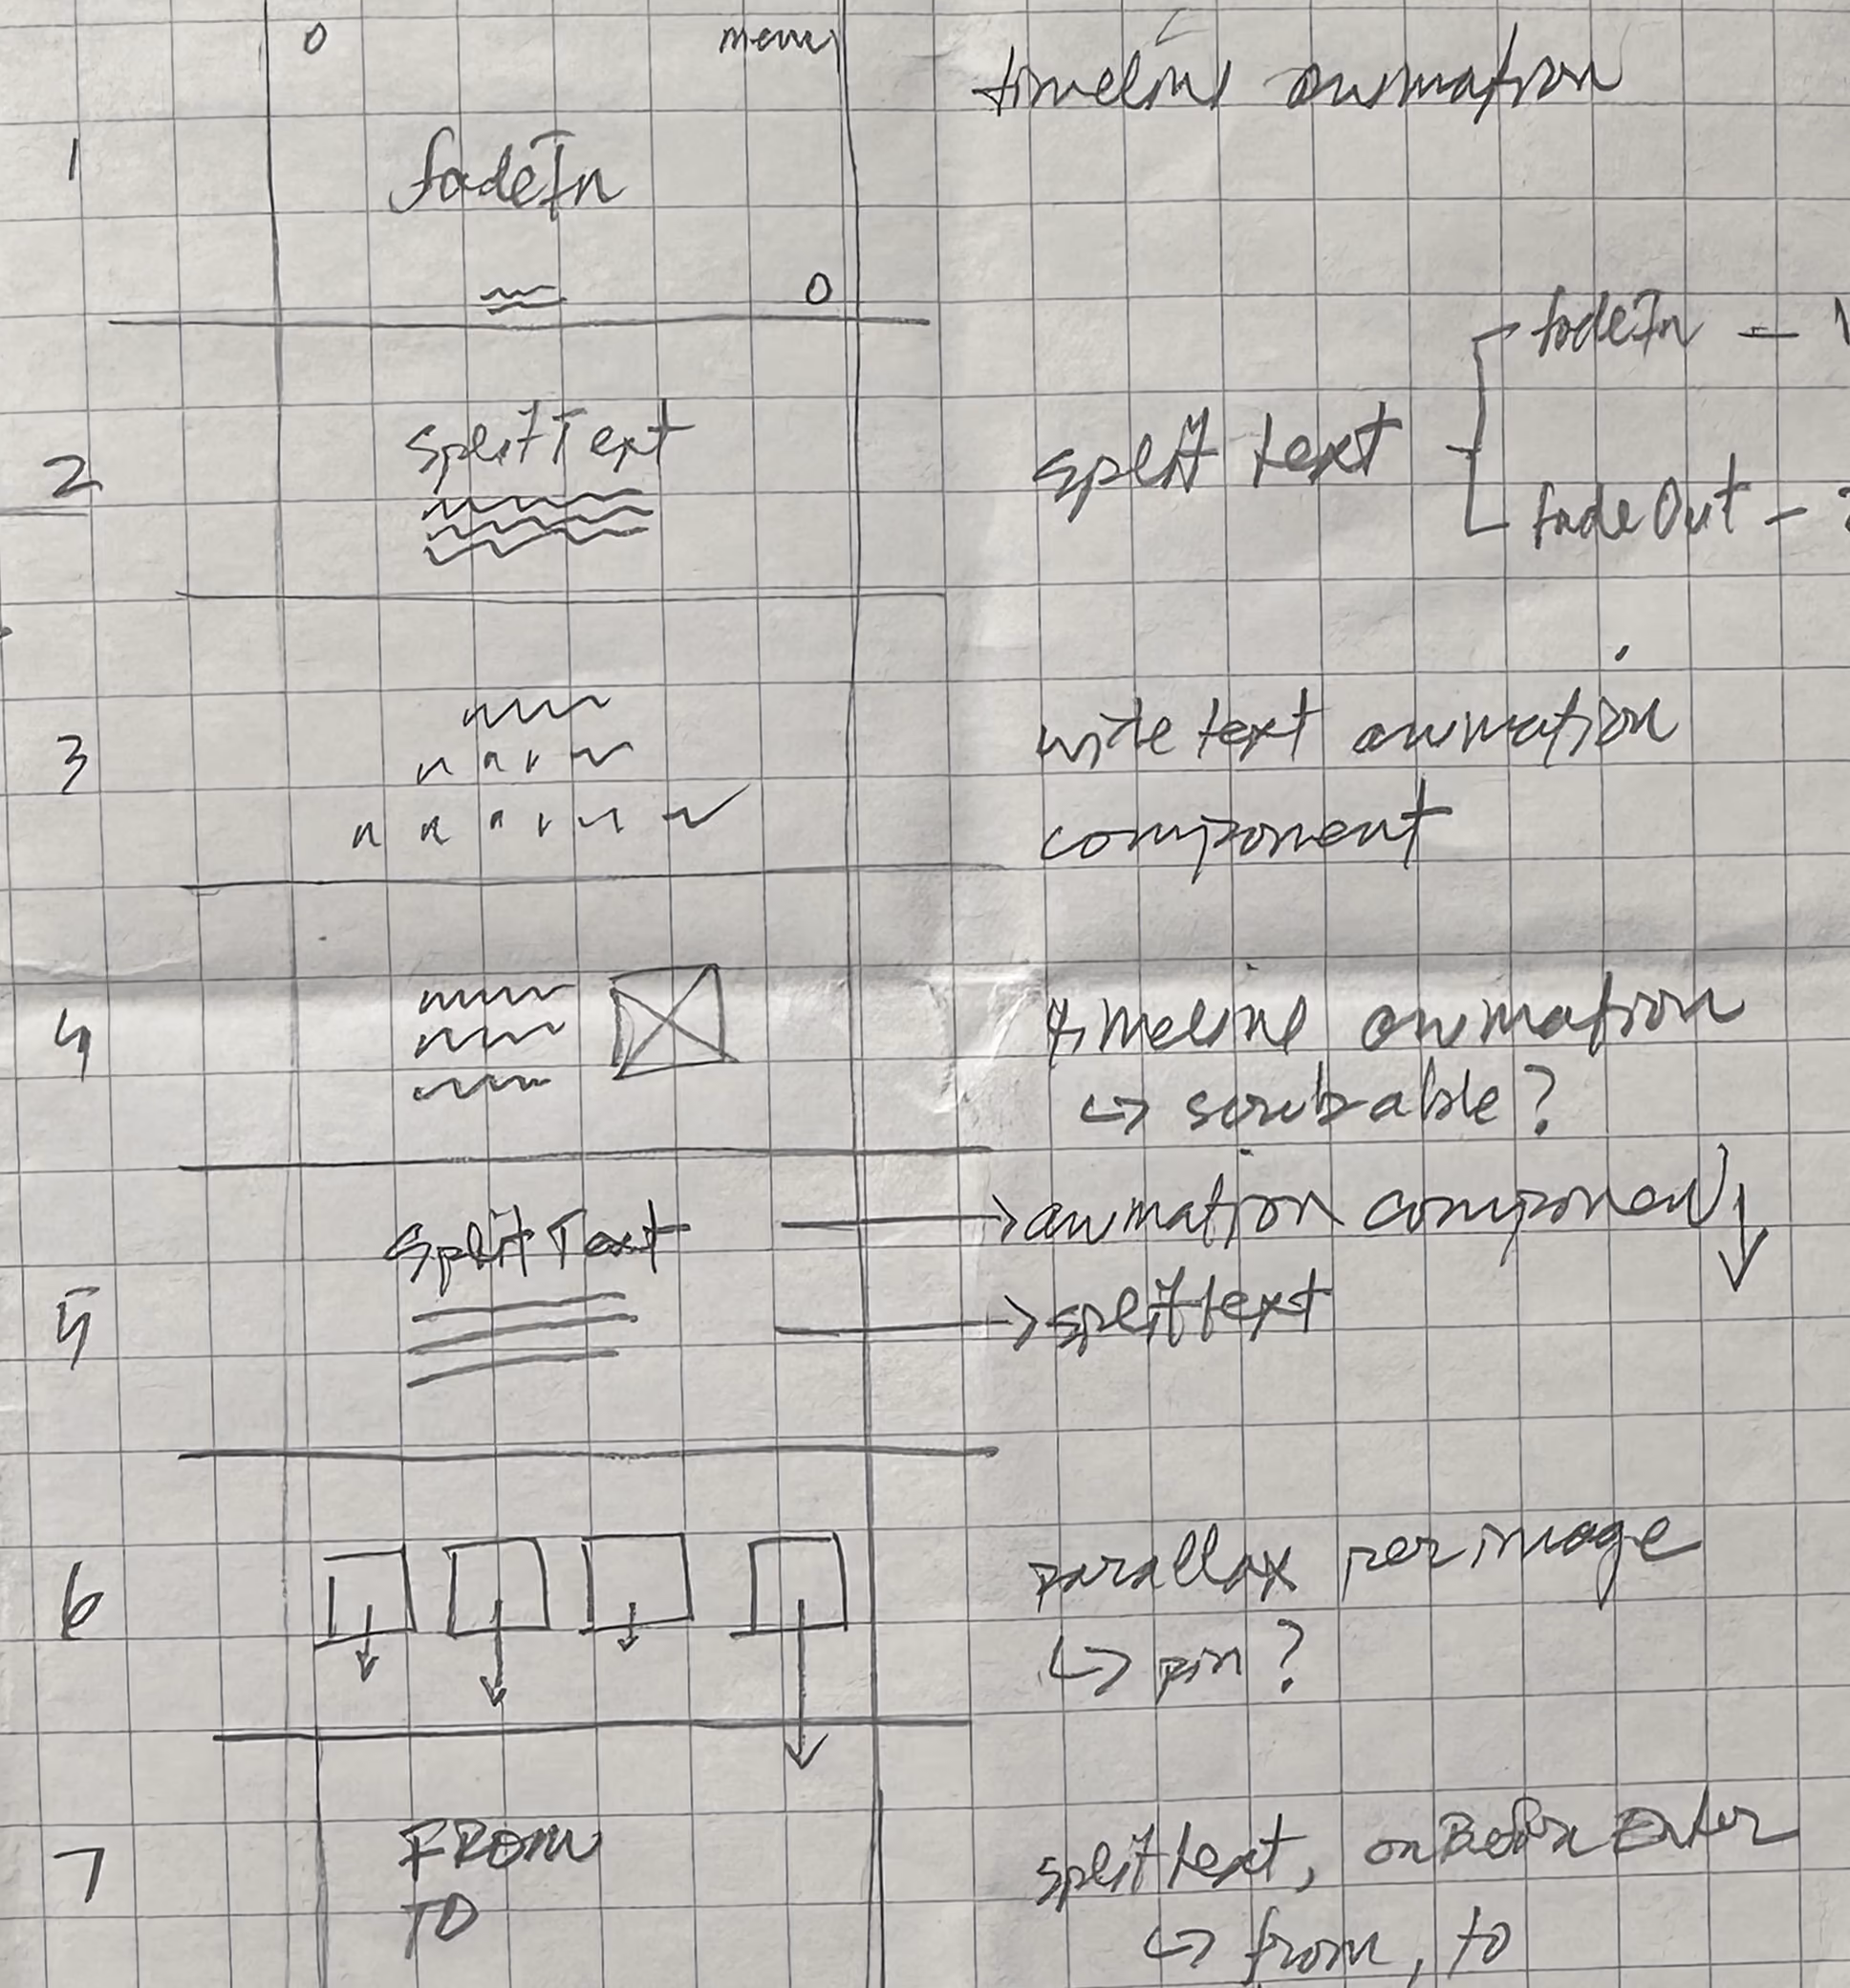 0 menu
timeline animation
1
fadeIn
0
fadeIn - 1
2
splitText
split text
fadeOut -
3
write text animation
component
4
timeline animation
↳ scrubable?
→ animation component ↓
5
splitText
→ splittext
6
parallax per image
↳ pin?
7
FROM
TO
splittext, onBeforeEnter
↳ from, to